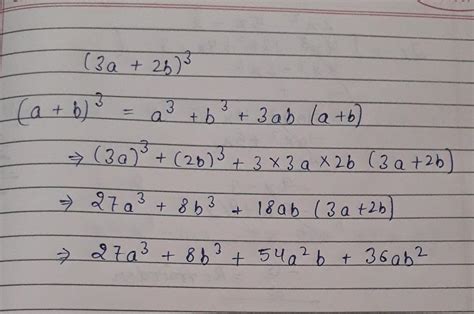 (3a + 2b)³
(a + b)³ = a³ + b³ + 3ab (a+b)
⇒ (3a)³ + (2b)³ + 3 × 3a × 2b (3a+2b)
⇒ 27a³ + 8b³ + 18ab (3a+2b)
⇒ 27a³ + 8b³ + 54a²b + 36ab²